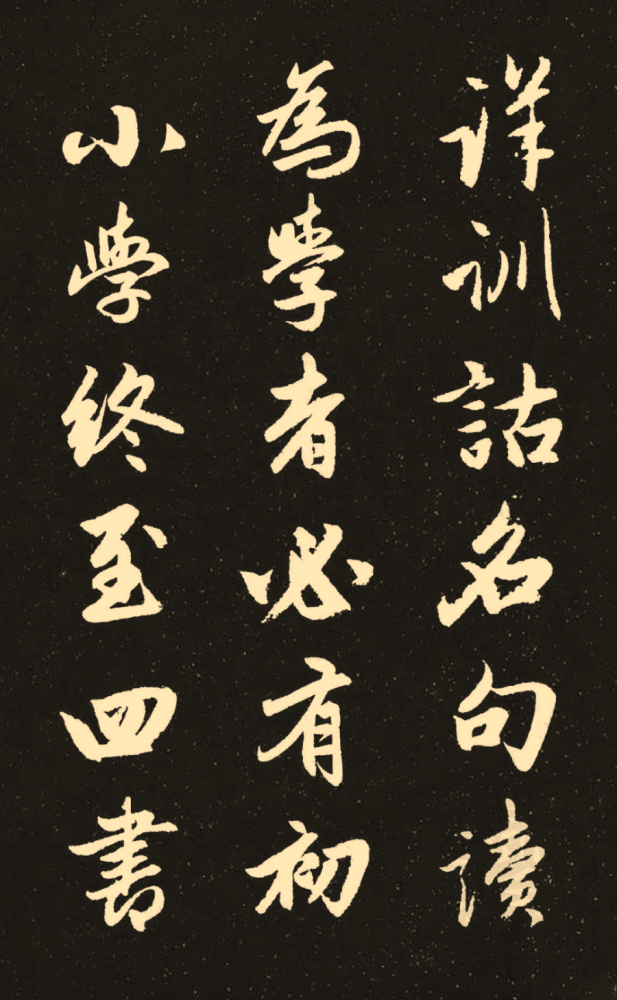 詳訓詁名句讀
為學者必有初
小學終至四書